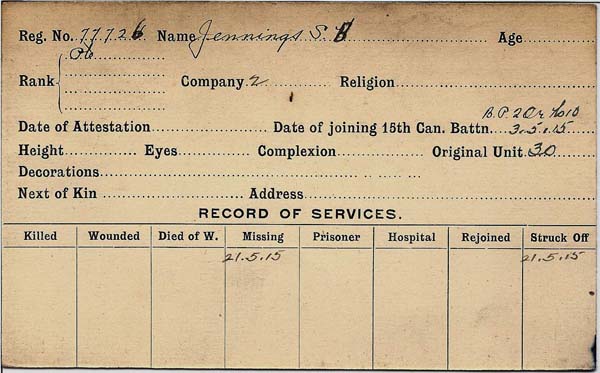 Reg. No. 77726 Name Jennings S. B Age
Rank Pte
Company 2 Religion
B.P. 2 Or
Date of Attestation Date of joining 15th Can. Battn. 3.5.15
Height Eyes Complexion Original Unit 30
Decorations
Next of Kin Address
RECORD OF SERVICES.
Killed Wounded Died of W. Missing Prisoner Hospital Rejoined Struck Off
21.5.15 21.5.15